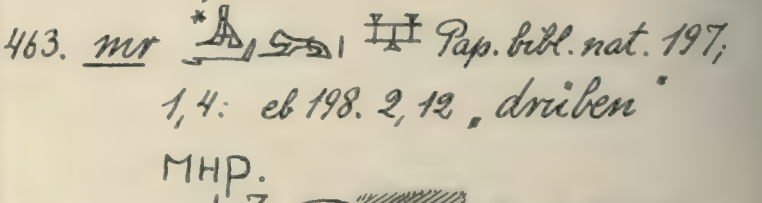 463. mr * Pap. bibl. nat. 197;
1, 4: eb 198. 2, 12 „drüben“
ⲙⲏⲣ.